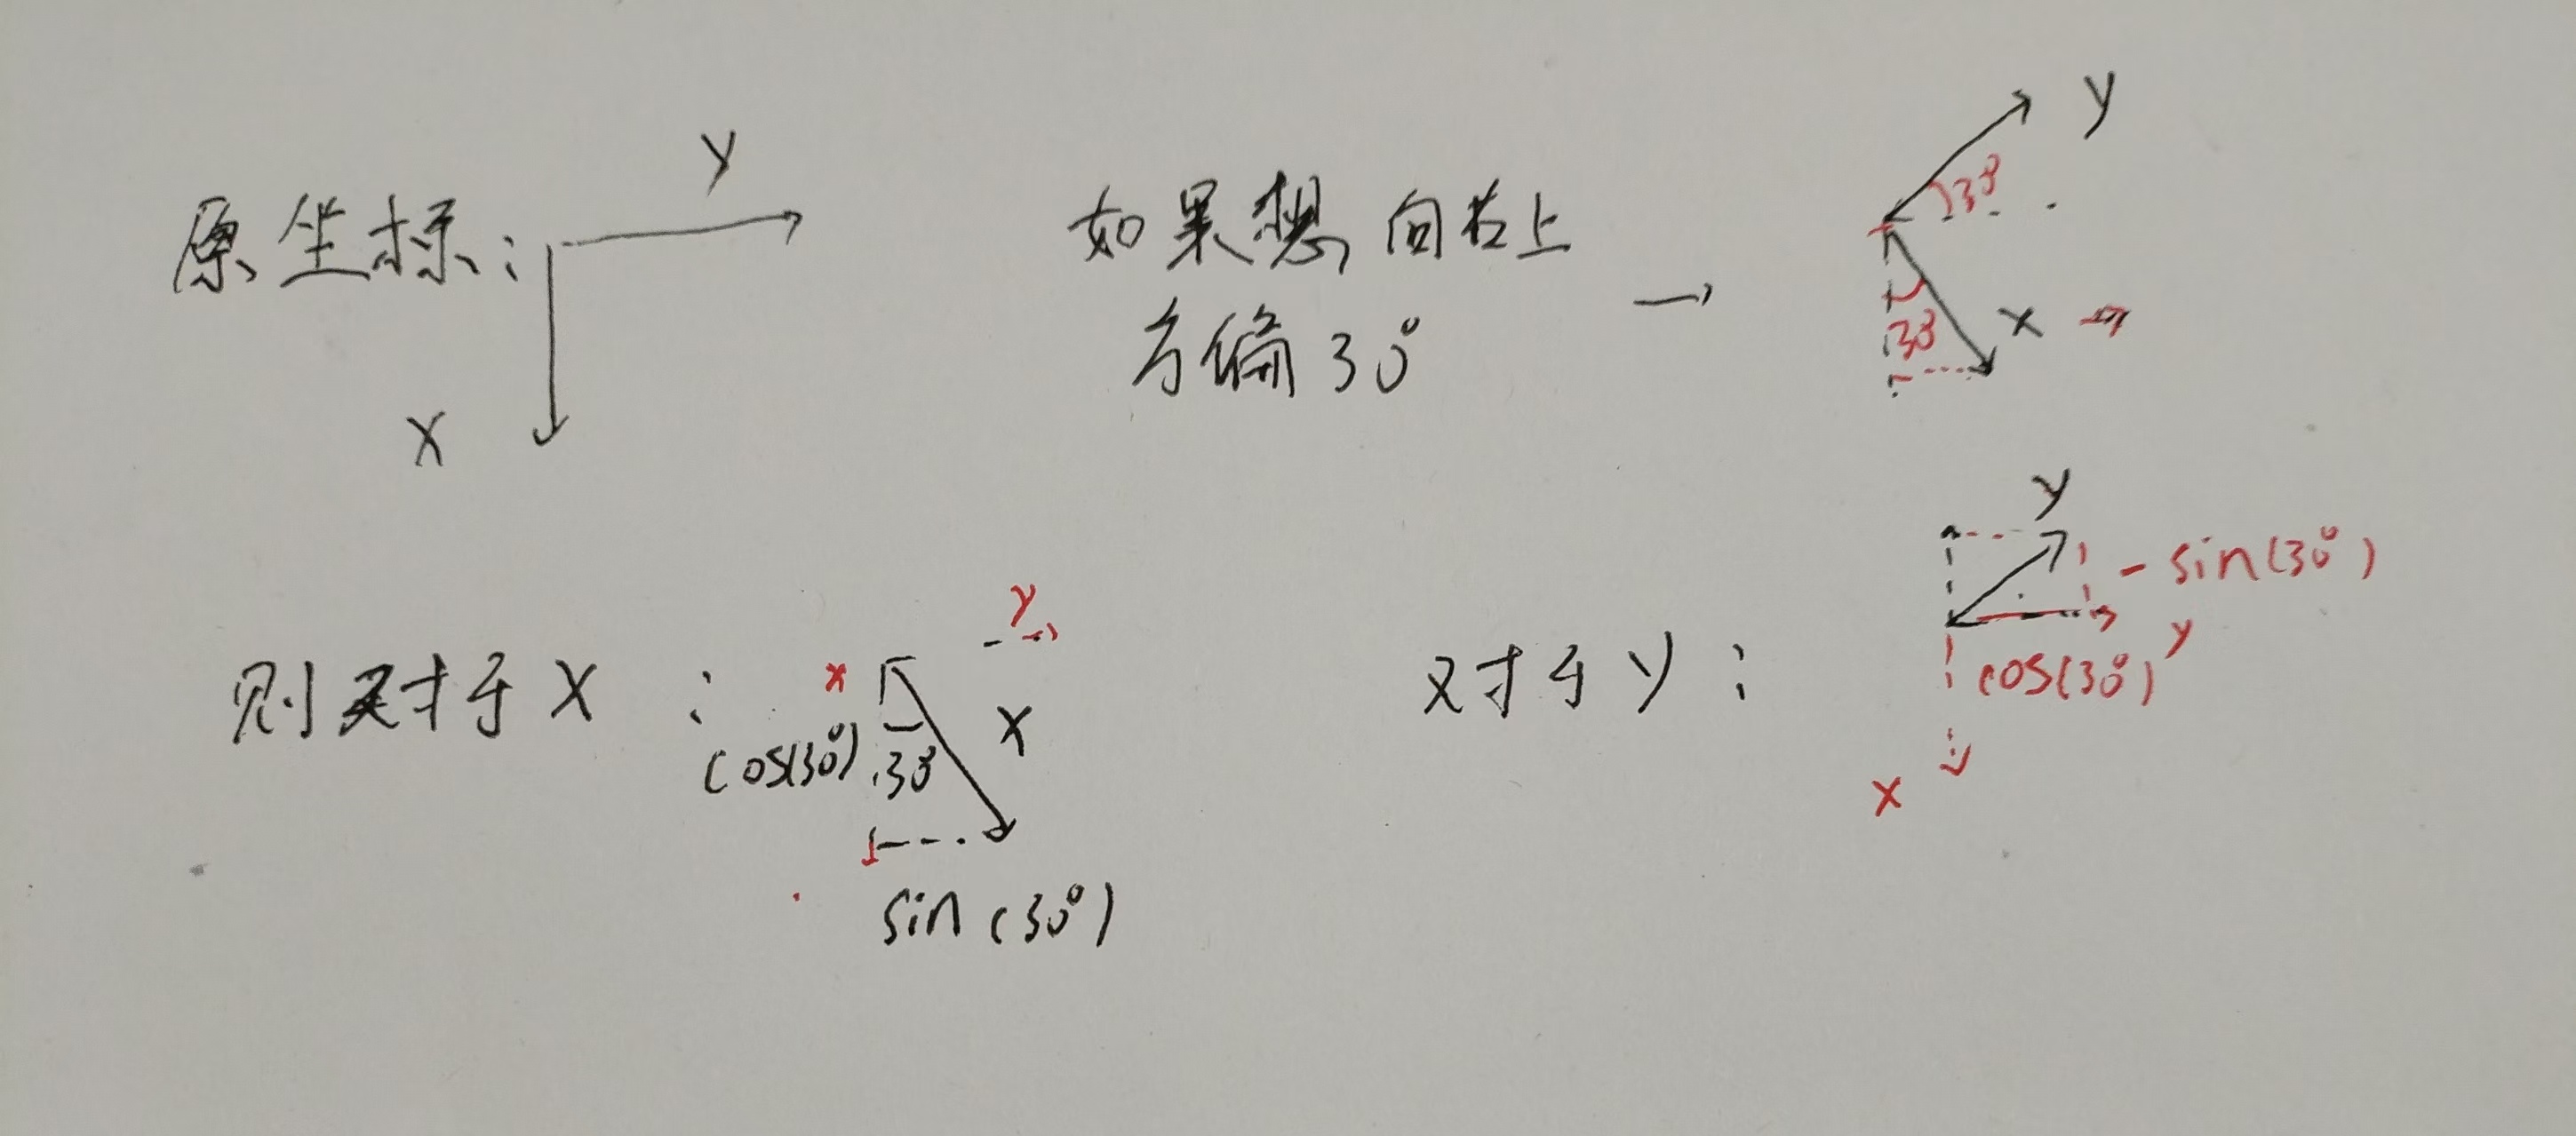 y
原坐标:
x
如果想向右上
方偏30°
→
y
30°
30°
x →
则对于x:
y
x
cos(30°)
30°
x
sin(30°)
对于y:
y
-sin(30°)
y
cos(30°)
x